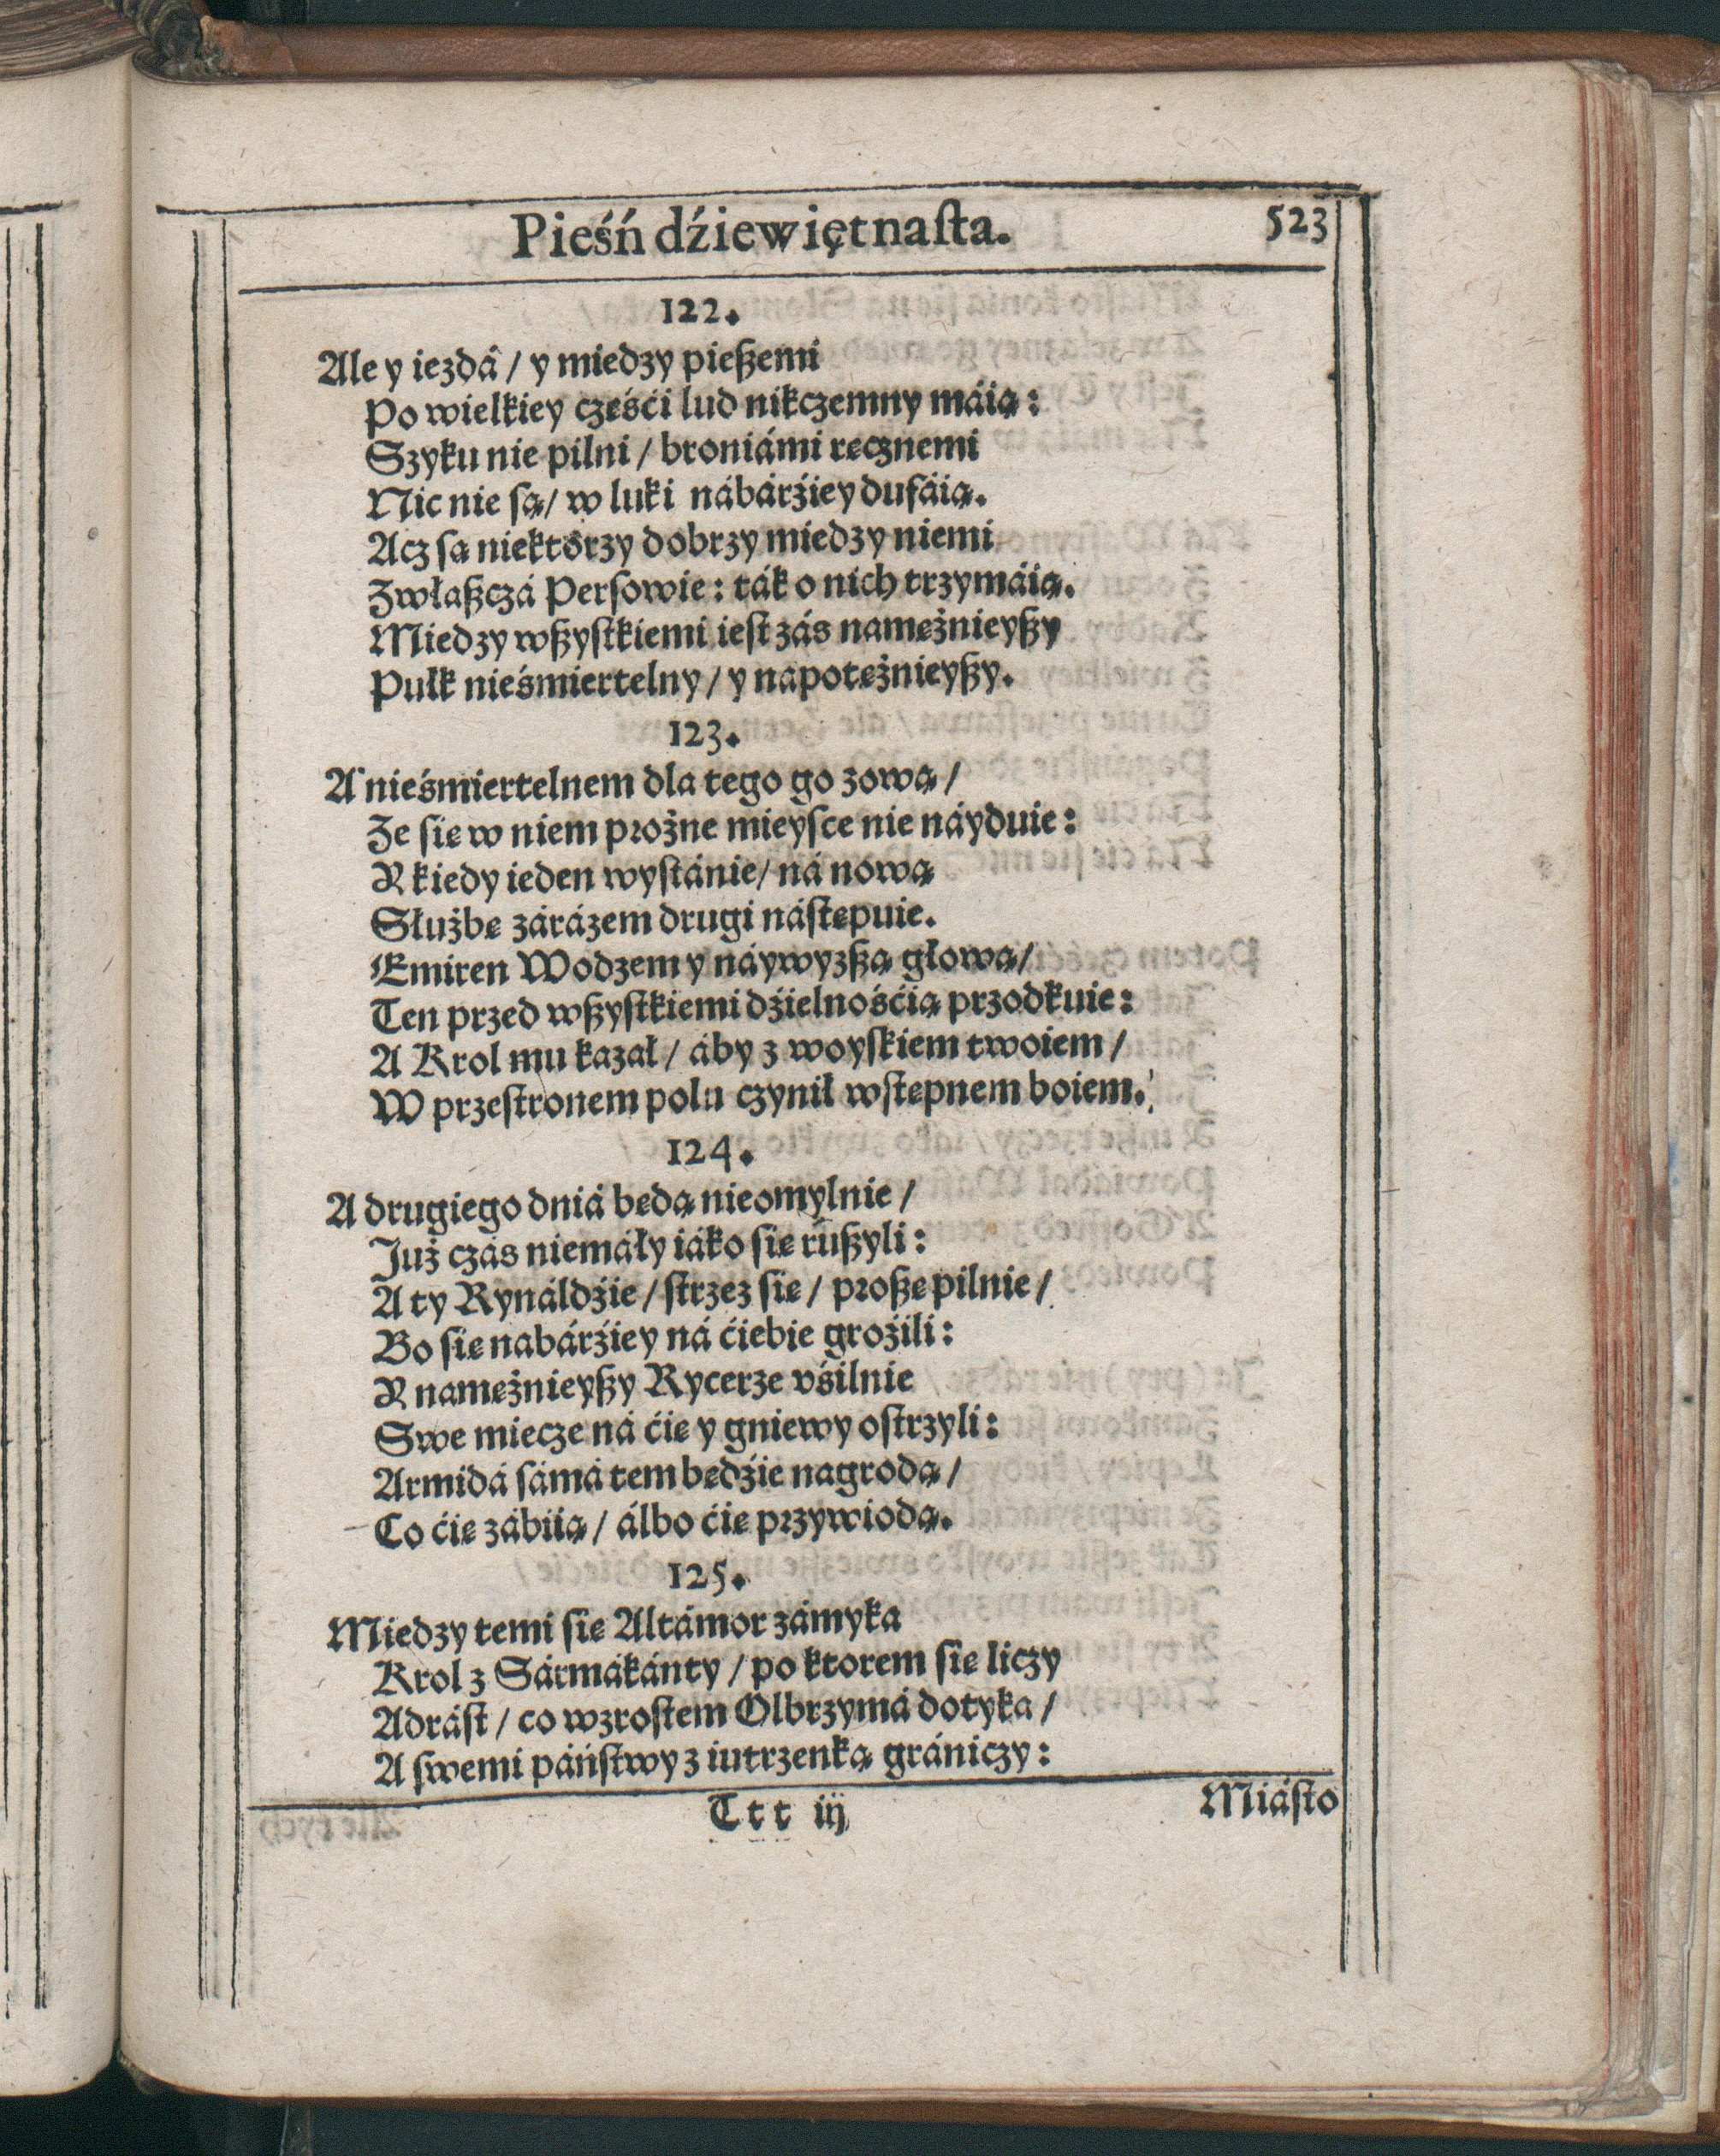 Pieśń dźiewiętnaſta. 523
122.
Ale y iezdâ / y miedzy pießemi
Po wielkiey cześći lud nikczemny máią:
Szyku nie pilni / broniámi ręcznemi
Nic nie są / w luki nábárźiey dufáią.
Acz są niektórzy dobrzy miedzy niemi
Zwłaßczá Perſowie: ták o nich trzymáią.
Miedzy wßyſtkiemi ieſt zás namężnieyßy
Pułk nieśmiertelny / y napotężnieyßy.
123.
A nieśmiertelnem dla tego go zową /
Ze ſię w niem prożne mieyſce nie náyduie:
R kiedy ieden wyſtánie / ná nową
Służbę zárázem drugi náſtępuie.
Emiren Wodzem y náywyzßą głową /
Ten przed wßyſtkiemi dźielnośćią przodkuie:
A Krol mu kazał / áby z woyſkiem twoiem /
W przeſtronem polu czynił wſtępnem boiem.
124.
A drugiego dniá będą nieomylnie /
Już czás niemáły iáko ſię rußyli:
A ty Rynáldźie / ſtrzez ſię / proßę pilnie /
Bo ſię nabárźiey ná ćiebie groźili:
R namężnieyßy Rycerze vśilnie
Swe miecze ná ćię y gniewy oſtrzyli:
Armidá ſámá tem będźie nagrodą /
Co ćię zábiią / álbo ćię przywiodą.
125.
Miedzy temi ſię Altámor zámyka
Krol z Sármákánty / po ktorem ſię liczy
Adráſt / co wzroſtem Olbrzymá dotyka /
A ſwemi páńſtwy z iutrzenką grániczy:
Ttt iij Miáſto